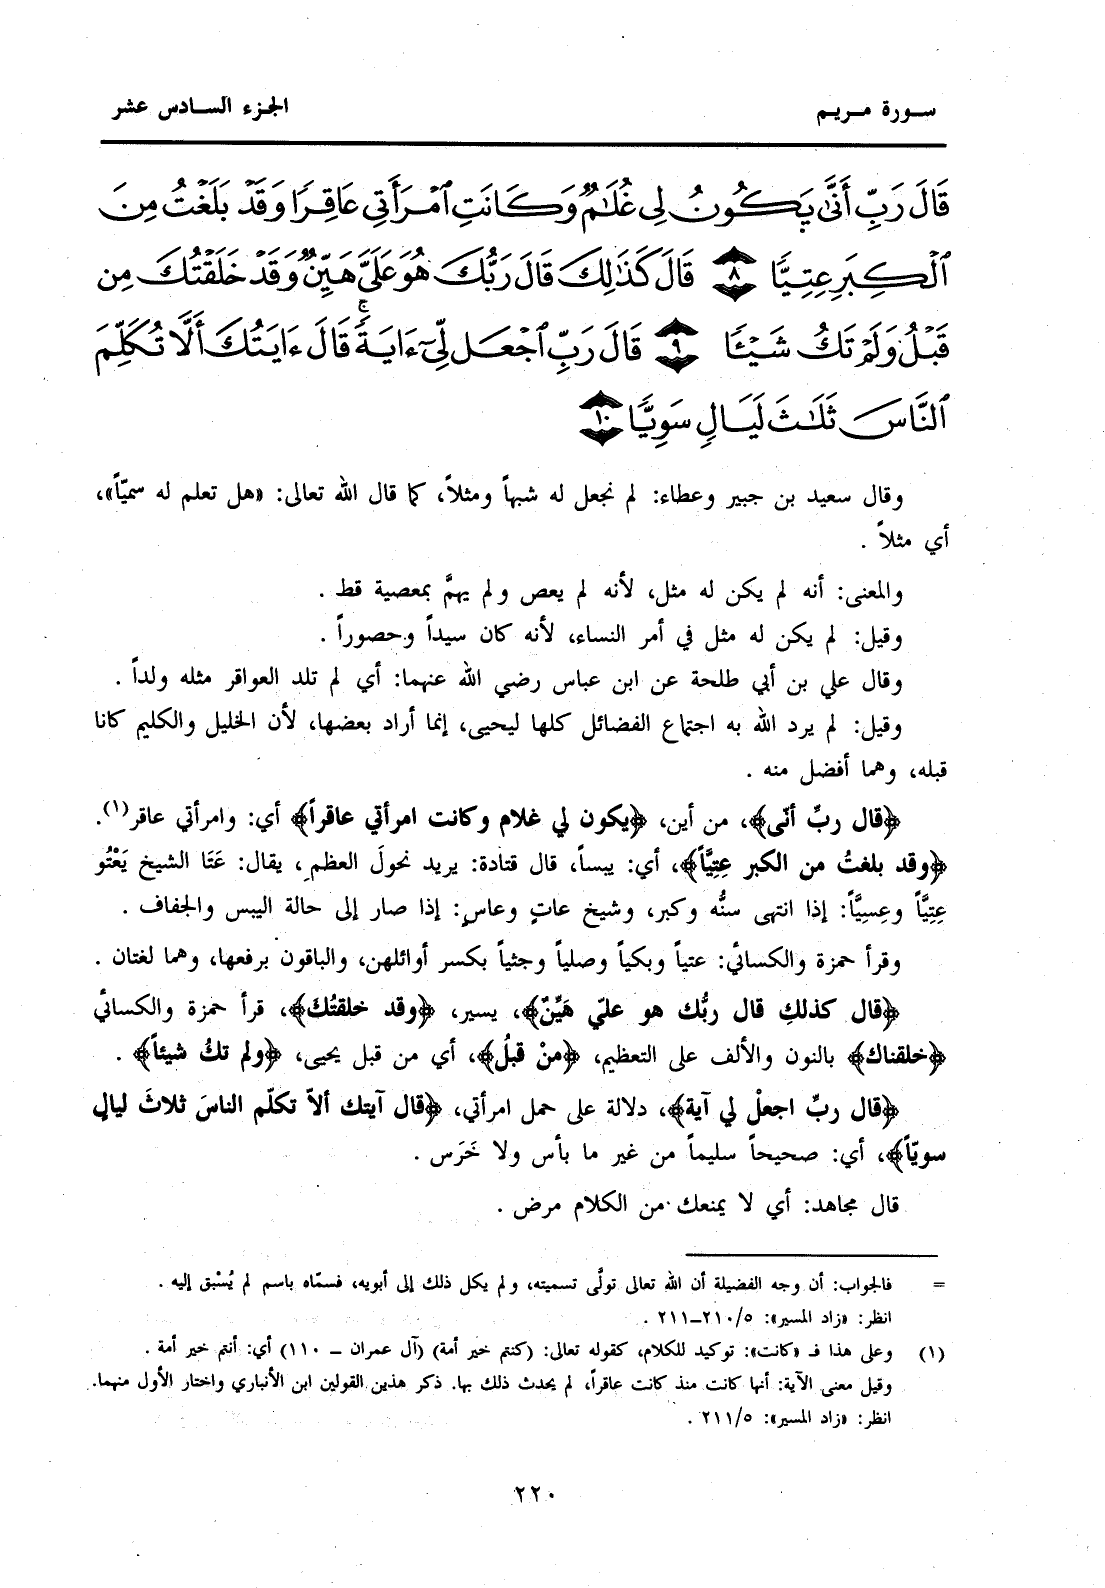 سورة مريم
الجزء السادس عشر
قَالَ رَبِّ أَنَّىٰ يَكُونُ لِي غُلَٰمٌ وَكَانَتِ ٱمْرَأَتِي عَاقِرًا وَقَدْ بَلَغْتُ مِنَ
ٱلْكِبَرِ عِتِيًّا ٨ قَالَ كَذَٰلِكَ قَالَ رَبُّكَ هُوَ عَلَيَّ هَيِّنٌ وَقَدْ خَلَقْتُكَ مِن
قَبْلُ وَلَمْ تَكُ شَيْـًٔا ٩ قَالَ رَبِّ ٱجْعَل لِّيٓ ءَايَةً ۚ قَالَ ءَايَتُكَ أَلَّا تُكَلِّمَ
ٱلنَّاسَ ثَلَٰثَ لَيَالٍ سَوِيًّا ١٠
وقال سعيد بن جبير وعطاء: لم نجعل له شبهاً ومثلاً، كما قال الله تعالى: «هل تعلم له سميّاً»،
أي مثلاً .
والمعنى: أنه لم يكن له مثل، لأنه لم يعص ولم يهمَّ بمعصية قط .
وقيل: لم يكن له مثل في أمر النساء، لأنه كان سيداً وحصوراً .
وقال علي بن أبي طلحة عن ابن عباس رضي الله عنهما: أي لم تلد العواقر مثله ولداً .
وقيل: لم يرد الله به اجتماع الفضائل كلها ليحيى، إنما أراد بعضها، لأن الخليل والكليم كانا
قبله، وهما أفضل منه .
﴿قال ربِّ أنّى﴾، من أين، ﴿يكون لي غلام وكانت امرأتي عاقراً﴾ أي: وامرأتي عاقر(١).
﴿وقد بلغتُ من الكبر عِتِيَّاً﴾، أي: يبساً، قال قتادة: يريد نحولَ العظمِ، يقال: عَتَا الشيخ يَعْتُو
عِتِيَّاً وعِسِيَّاً: إذا انتهى سنُّه وكبر، وشيخ عاتٍ وعاسٍ: إذا صار إلى حالة اليبس والجفاف .
وقرأ حمزة والكسائي: عتياً وبكياً وصلياً وجثياً بكسر أوائلهن، والباقون برفعها، وهما لغتان .
﴿قال كذلكِ قال ربُّك هو عليّ هَيِّنٌ﴾، يسير، ﴿وقد خلقتُكَ﴾، قرأ حمزة والكسائي
﴿خلقناك﴾ بالنون والألف على التعظيم، ﴿منْ قبلُ﴾، أي من قبل يحيى، ﴿ولم تكُ شيئاً﴾ .
﴿قال ربِّ اجعلْ لي آية﴾، دلالة على حمل امرأتي، ﴿قال آيتك ألاّ تكلّم الناسَ ثلاثَ ليالٍ
سويّاً﴾، أي: صحيحاً سليماً من غير ما بأس ولا خَرَس .
قال مجاهد: أي لا يمنعك من الكلام مرض .
= فالجواب: أن وجه الفضيلة أن الله تعالى تولَّى تسميته، ولم يكل ذلك إلى أبويه، فسمّاه باسم لم يُسْبق إليه .
انظر: «زاد المسير»: ٥/٢١٠-٢١١ .
(١) وعلى هذا فـ «كانت»: توكيد للكلام، كقوله تعالى: (كنتم خير أمة) (آل عمران - ١١٠) أي: أنتم خير أمة .
وقيل معنى الآية: أنها كانت منذ كانت عاقراً، لم يحدث ذلك بها. ذكر هذين القولين ابن الأنباري واختار الأول منهما.
انظر: «زاد المسير»: ٥/٢١١ .
٢٢٠